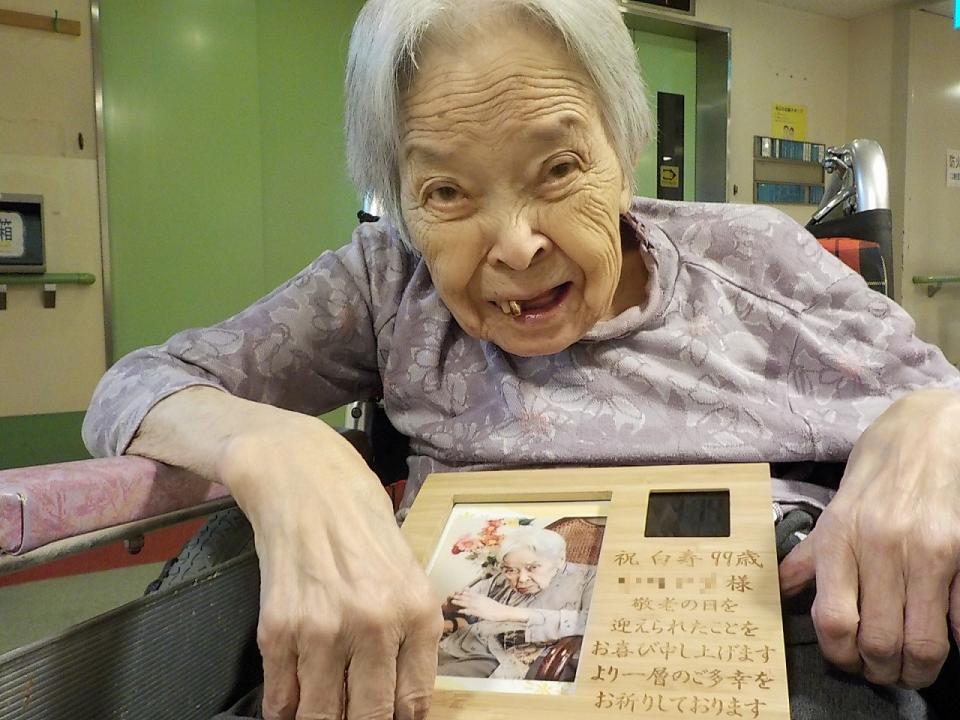 箱
防火
祝 白寿 99歳
様
敬老の日を
迎えられたことを
お喜び申し上げます
より一層のご多幸を
お祈りしております